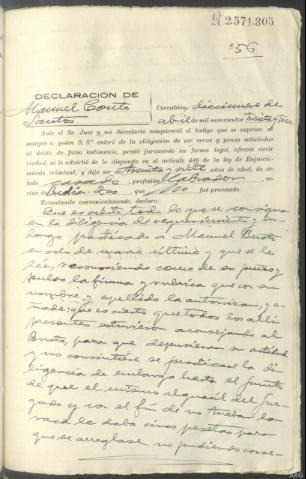 R 2571.305
56
DECLARACIÓN DE
Manuel Couto
Santos
Corcubión, diecinueve de
abril de mil novecientos treinta y tres.
Ante el Sr. Juez y mi Secretario compareció el testigo que se expresa al
margen a quien S. Sª enteró de la obligación de ser veraz y penas señaladas
al delito de falso testimonio, prestó juramento en forma legal, ofreció decir
verdad, se le advirtió de lo dispuesto en el artículo 446 de la ley de Enjuicia-
miento criminal, y dijo ser de treinta y siete años de edad, de es-
tado casado, profesión labrador ve-
cino de que no fué procesado.
Examinado convenientemente, declara:
Que es cierto todo lo que se consigna
en la diligencia de requerimiento y em-
bargo practicado a Manuel Busto
en ocho de marzo último y que se le
lee, reconociendo como de su puño y
pulso la firma y rúbrica que con su
nombre y apellido la autoriza, y a-
ñade: que es cierto que todos los allí
presentes estuvieron aconsejando al
Busto, para que depusiera su actitud
y no consintiese se practicase la di-
ligencia de embargo hasta el punto
de que el mismo alguacil del Juz-
gado y con el fin de no trabar la
vaca le daba cinco pesetas para
que se arreglase no pudiendo conse-